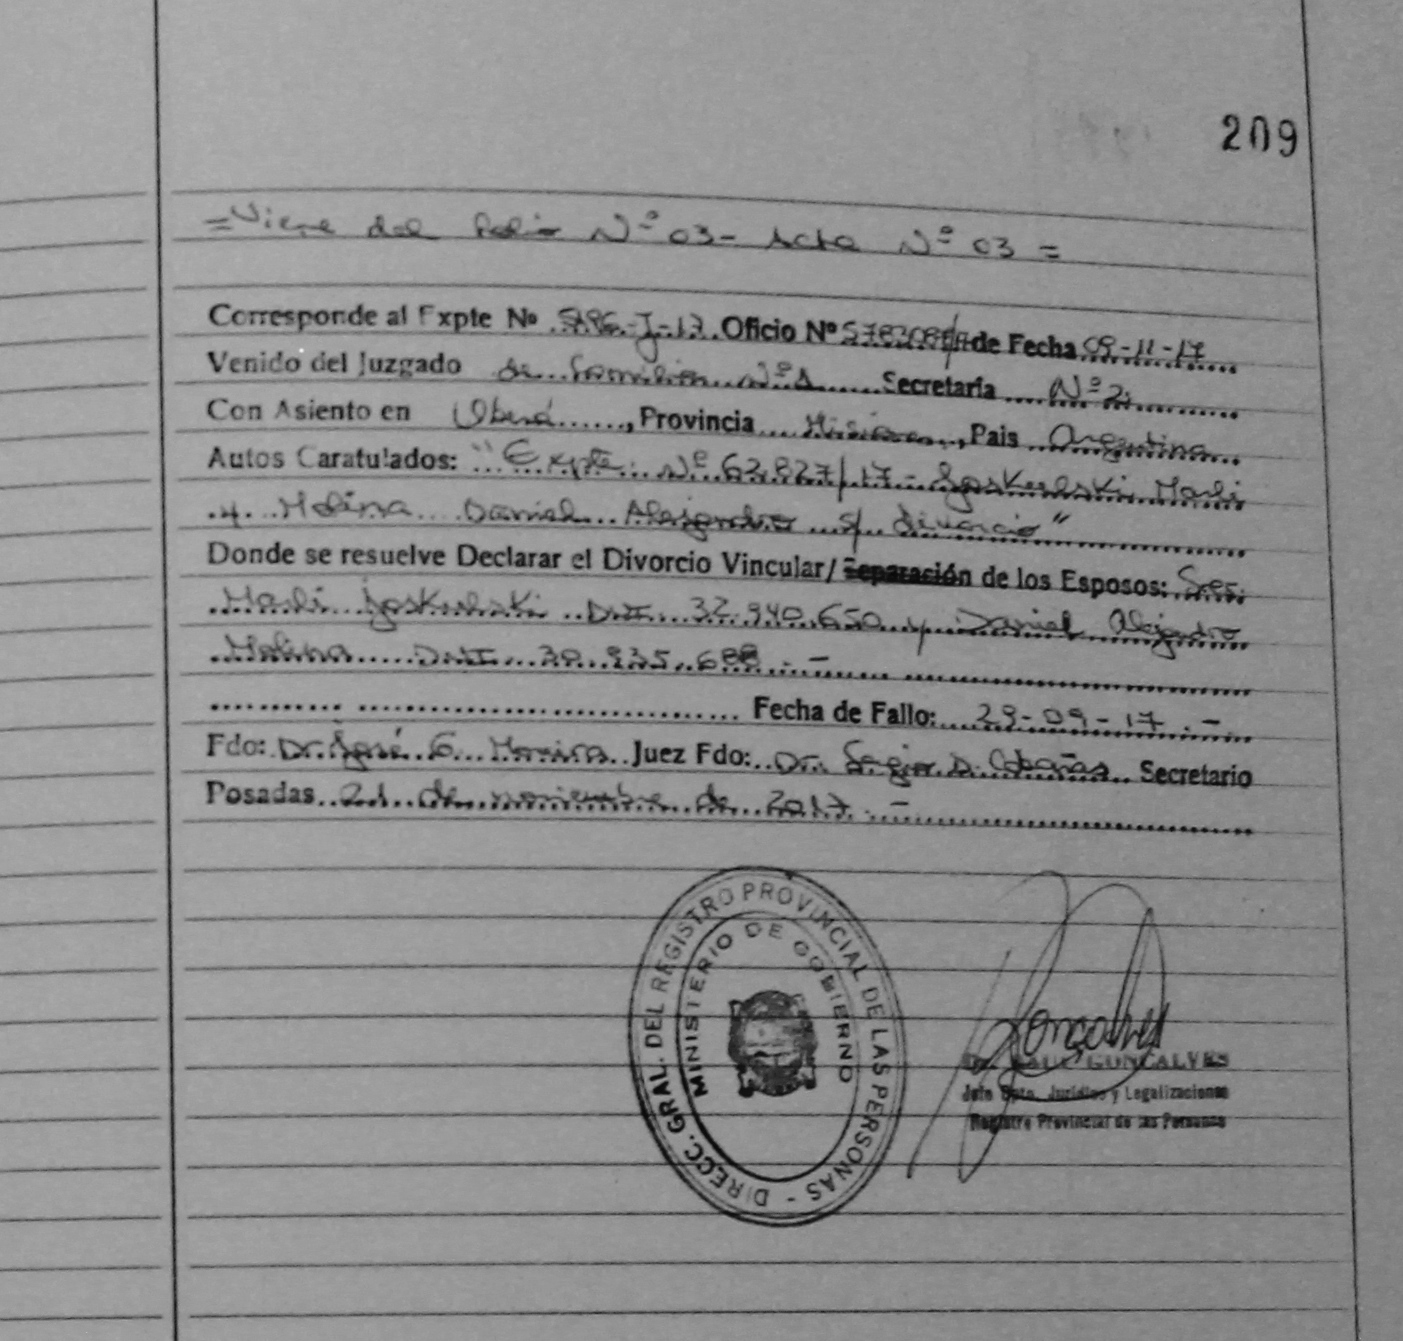 209
= Viene del Folio Nº 03 - Acta Nº 03 =
Corresponde al Expte Nº 5186-J-17 Oficio Nº de Fecha 09-11-17
Venido del Juzgado de Familia Nº 1 Secretaría Nº 2
Con Asiento en Oberá, Provincia Misiones, Pais Argentina
Autos Caratulados: "Expte. Nº 62.827/17 - Jaskulski Marli
y Molina Daniel Alejandro s/ divorcio"
Donde se resuelve Declarar el Divorcio Vincular/ Separación de los Esposos: Sres.
Marli Jaskulski DNI 32.940.650 y Daniel Alejandro
Molina DNI 30.935.688 . -
Fecha de Fallo: 29-09-17 . -
Fdo: Dr. José G. Moreira Juez Fdo: Dr. Sergio D. Cabañas Secretario
Posadas 21 de noviembre de 2017 . -
DIRECC. GRAL. DEL REGISTRO PROVINCIAL DE LAS PERSONAS -
MINISTERIO DE GOBIERNO
Gonçalves
Dr. RAUL GONCALVES
Jefe Dpto. Jurídico y Legalizaciones
Registro Provincial de las Personas